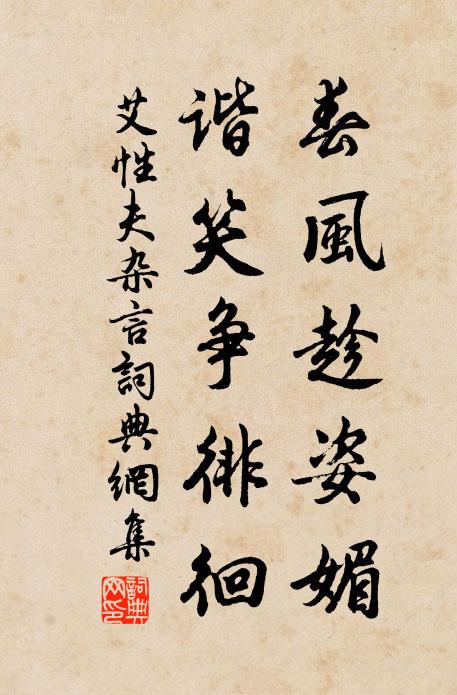 春風趁姿媚
谐笑争徘徊
艾性夫杂言詞典網集
詞典